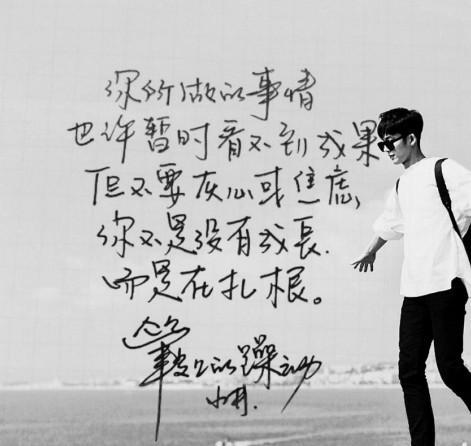 你所做的事情
也许暂时看不到成果
但不要灰心或焦虑
你不是没有成長.
而是在扎根。
筆尖上的躁动